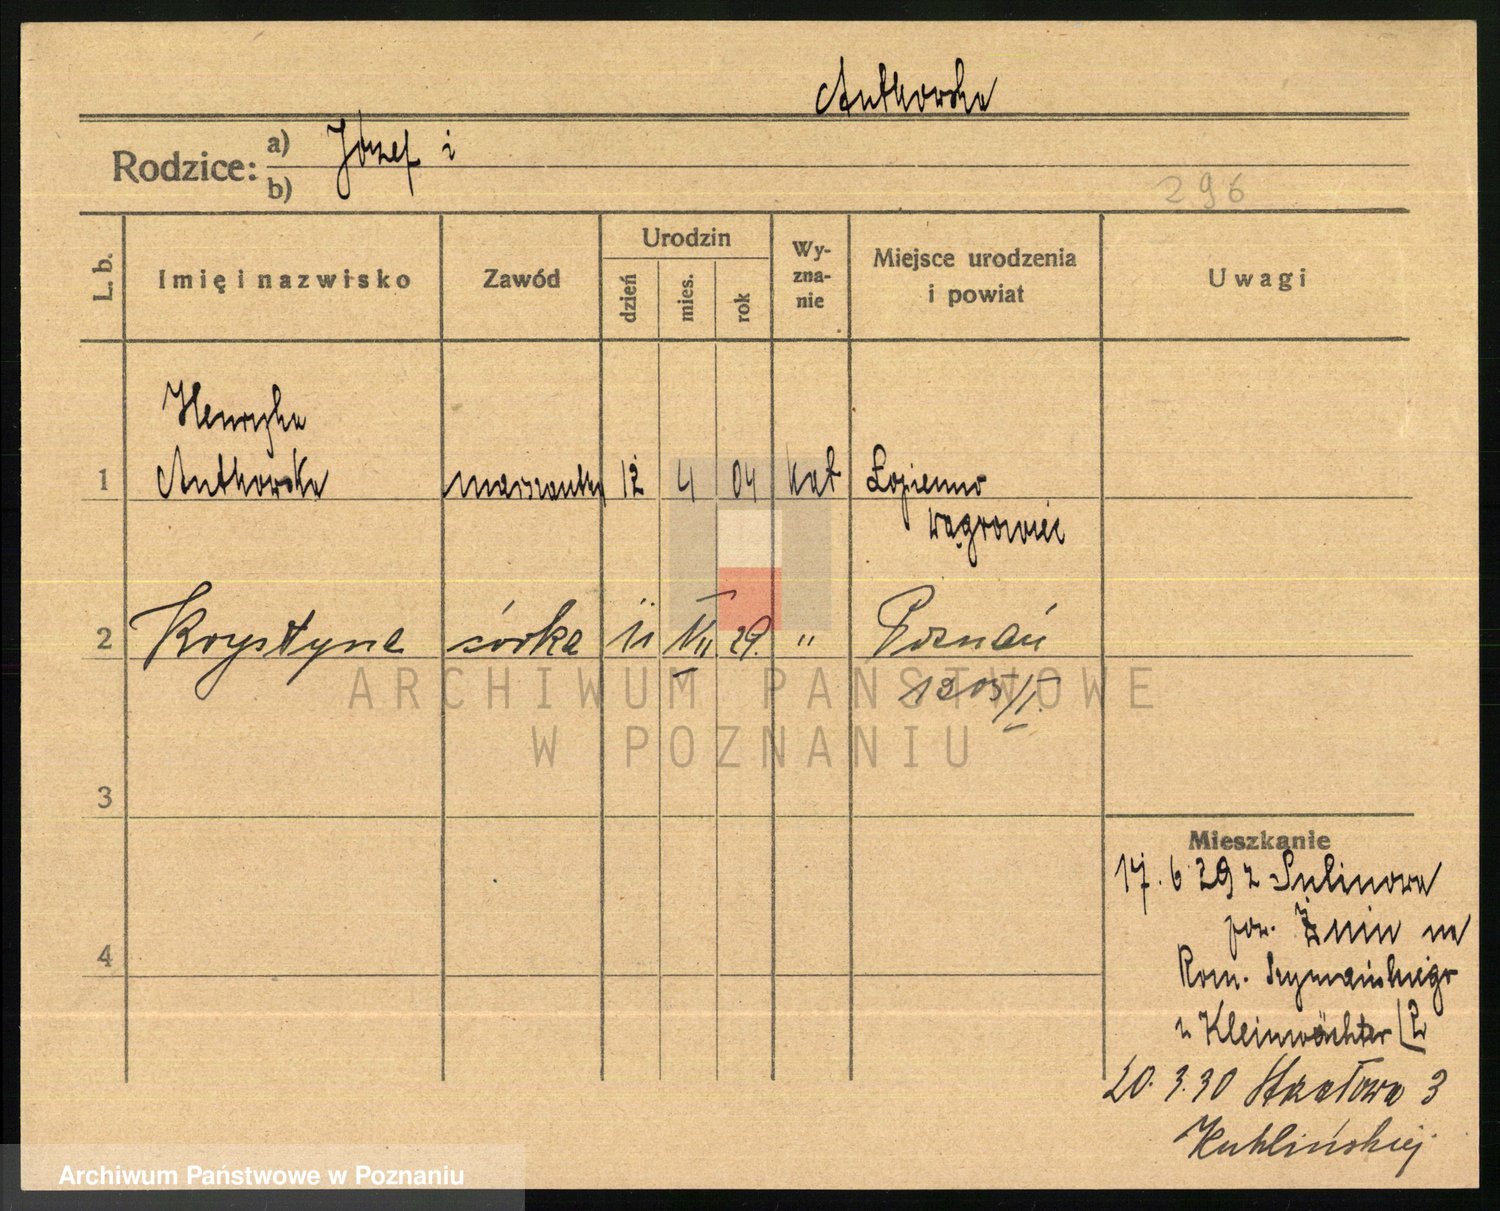 Antkowska
Rodzice:
a) Józef i
b)
296
L. b.
Imię i nazwisko
Zawód
Urodzin
dzień
mies.
rok
Wy-
zna-
nie
Miejsce urodzenia
i powiat
Uwagi
Henryka
1 Antkowska 12 4 04 kat Łopienno
Wągrowiec
2 Krystyna córka 11 VII 29. " Poznań
1205/I.
3
4
Mieszkanie
17. 6 29 z Sulinowa
pow. Żnin na
Rom. Szymańskiego
u Kleinwächter
20. 3. 30 Strzałowa 3
ARCHIWUM PAŃSTWOWE
W POZNANIU
Archiwum Państwowe w Poznaniu